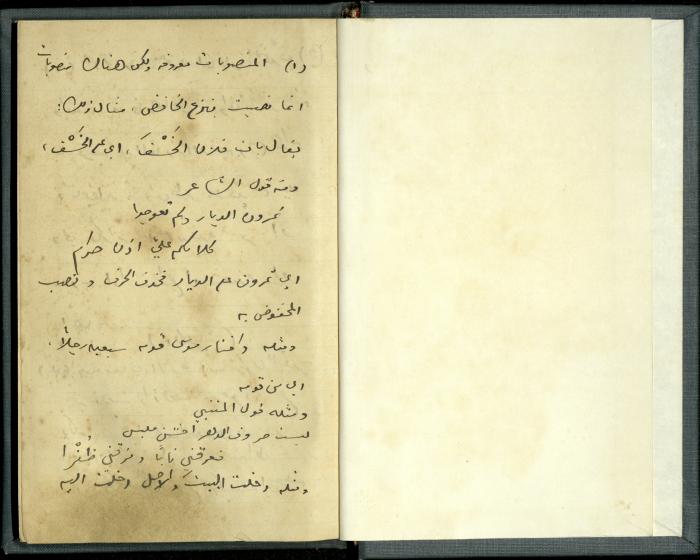 (١) المنصوبات معروفة ولكن هناك منصوبات
انما نصبت بنزع الخافض، مثال ذلك:
يقال بات فلان الخَسْفَ، اي على الخَسْف،
ومنه قول الشاعر
تمرون الديار ولم تعوجوا
كلامكم عليّ اذن حرام
اي تمرون على الديار فحذف الحرف ونصب
المخفوض به
ومثله واختار موسى قومه سبعين رجلاً.
اي من قومه
ومثله قول المتنبي
لبست صروف الدهر اخشن ملبس
فعرقنني ناباً ومزقنني ظُفْرا
ومثله دخلت البيتَ والاصل دخلت اليه